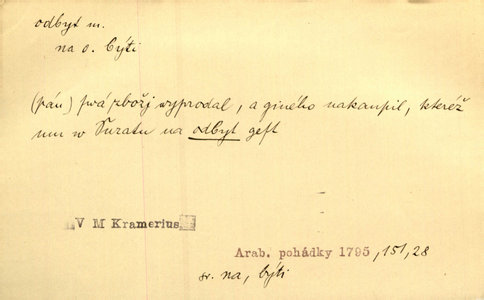 odbyt m.
na o. býti
(pán) swá zbožj wyprodal, a giného nakaupil, kteréž
mu w Suratu na odbyt gest
V M Kramerius
Arab. pohádky 1795, 151, 28
sr. na, býti